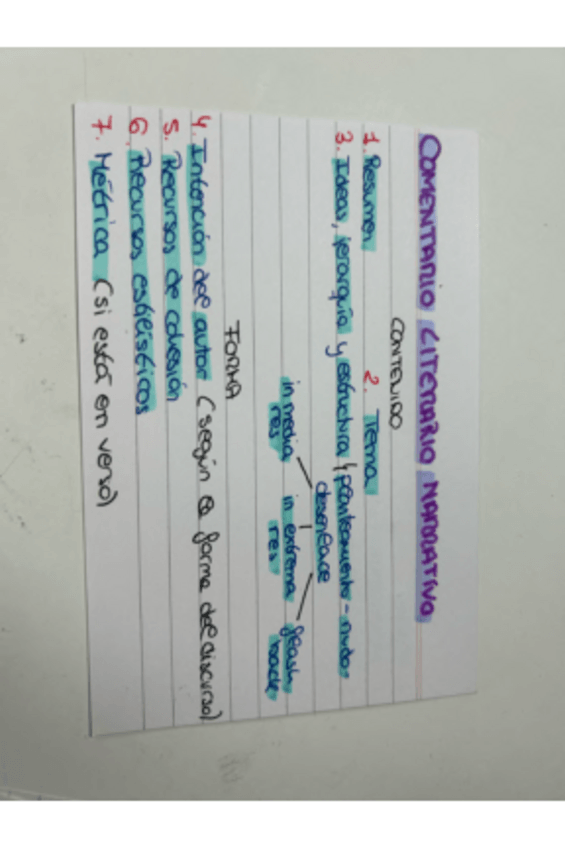 COMENTARIO LITERARIO NARRATIVO
CONTENIDO
1. Resumen 2. Tema
3. Ideas, jerarquía y estructura (planteamiento-nudo-
desenlace
in media in extrema flash
res res back
FORMA
4. Intención del autor (según la forma del discurso)
5. Recursos de cohesión
6. Recursos estilísticos
7. Métrica (si está en verso)